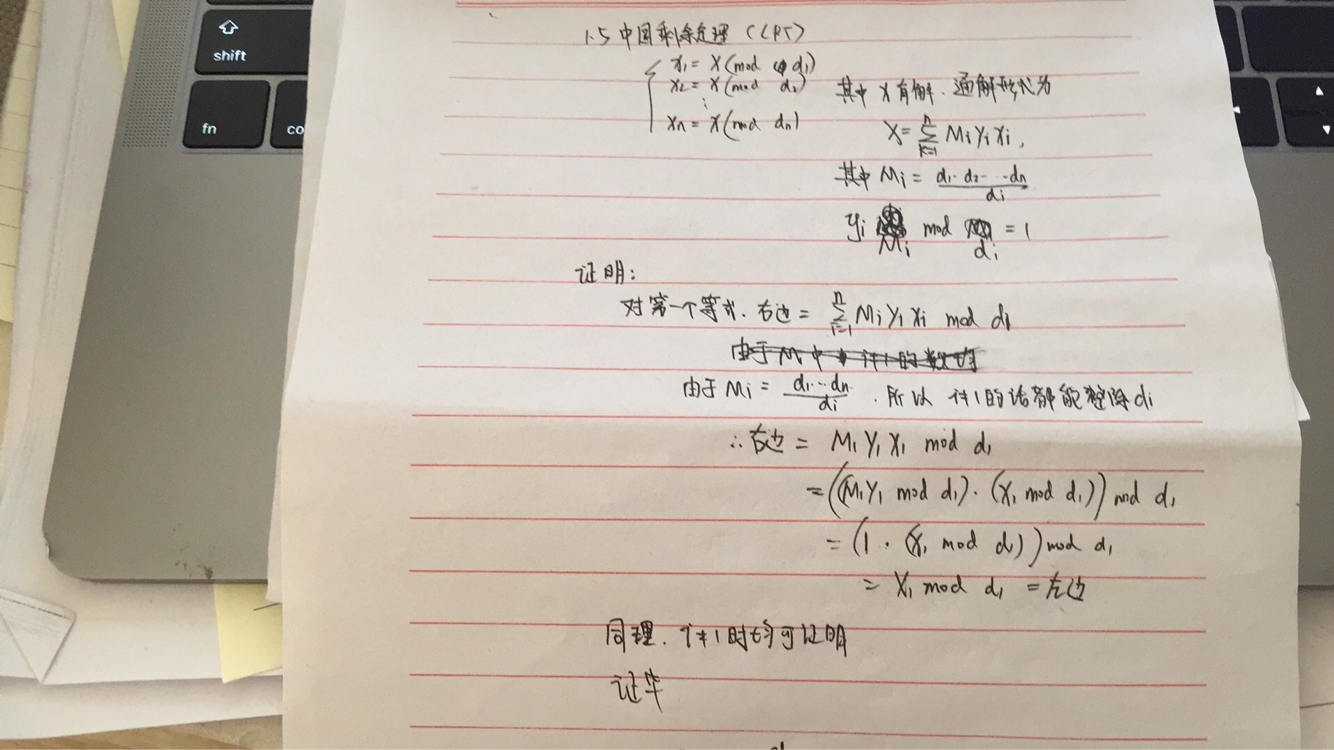 shift
fn
co
1.5 中国剩余定理 (CRT)
x₁ = X (mod d₁)
x₂ = X (mod d₂)
⋮
xₙ = X (mod dₙ)
其中 X 有解. 通解形式为
X = Σ_{i=1}^{n} Mᵢ yᵢ xᵢ,
其中 Mᵢ = d₁·d₂···dₙ / dᵢ
yᵢ Mᵢ mod dᵢ = 1
证明:
对第一个等式. 右边 = Σ_{i=1}^{n} Mᵢ yᵢ xᵢ mod d₁
由于 Mᵢ = d₁···dₙ / dᵢ . 所以 i≠1的话都能整除 dᵢ
∴ 右边 = M₁ y₁ x₁ mod d₁
= ((M₁y₁ mod d₁)·(x₁ mod d₁)) mod d₁
= (1 · (x₁ mod d₁)) mod d₁
= x₁ mod d₁ = 左边
同理. i≠1时均可证明
证毕